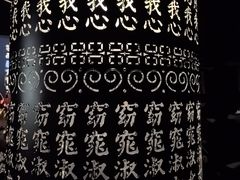 我心
我心
我心
我心
我心
窈窕淑
窈窕淑
窈窕淑
窈窕淑
窈窕淑
窈窕淑